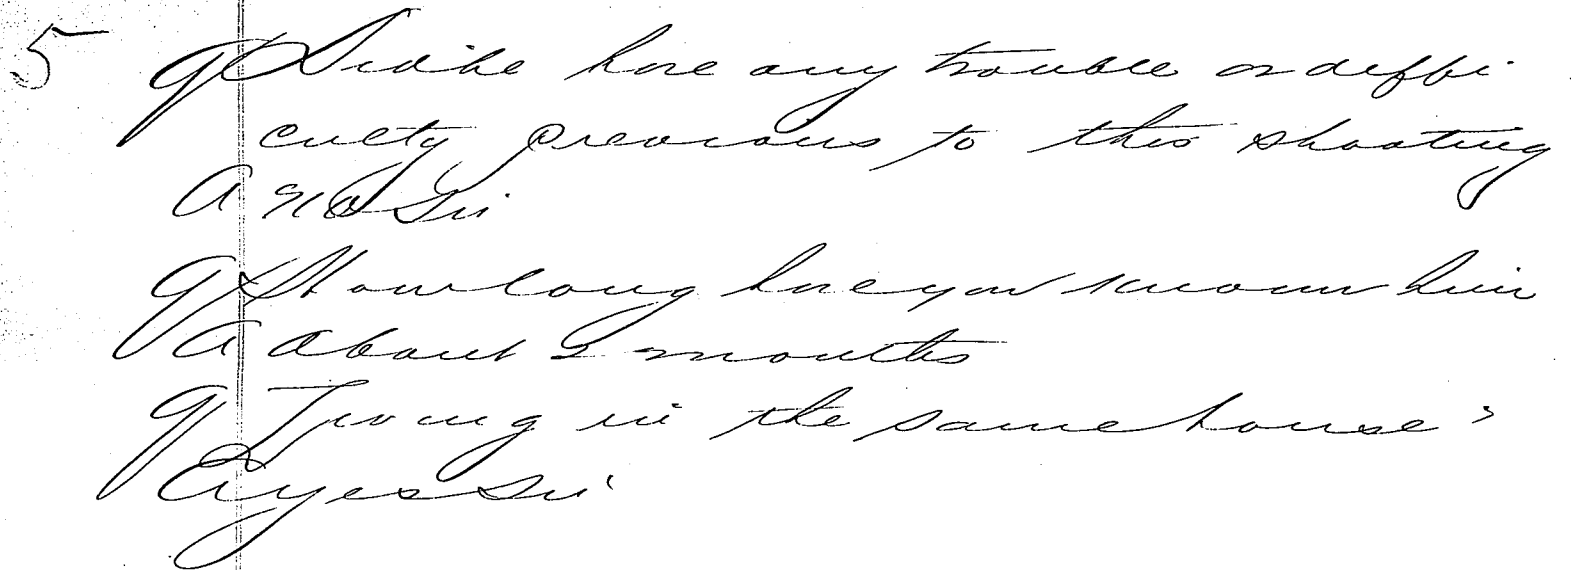 5 Q Did he have any trouble or diffi
culty previous to this shooting
A No Sir
Q How long have you known him
A About 2 months
Q Living in the same house?
A yes Sir